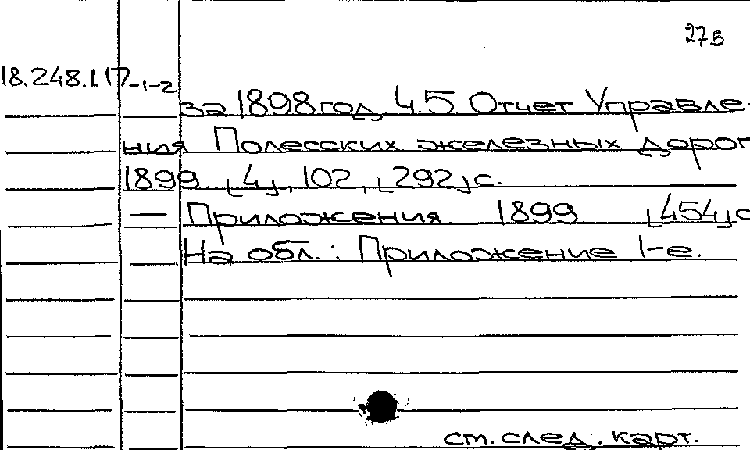 27в
18.248.1.17-1-2
за 1898 год. Ч.5. Отчет Управле-
ния Полесских железных дорог
1899 [4], 102, [292] с.
— Приложения. 1899 [454] с
На обл.: Приложение 1-е.
ст. след. карт.